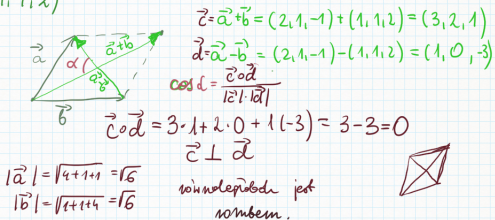 c⃗ = a⃗+b⃗ = (2,1,-1) + (1,1,2) = (3,2,1)
a⃗ a⃗+b⃗
d⃗ = a⃗-b⃗ = (2,1,-1) - (1,1,2) = (1,0,-3)
α a⃗-b⃗
cos α = c⃗∘d⃗ / |c⃗|·|d⃗|
b⃗
c⃗∘d⃗ = 3·1 + 2·0 + 1(-3) = 3-3 = 0
c⃗ ⊥ d⃗
|a⃗| = √4+1+1 = √6
|b⃗| = √1+1+4 = √6
równoległobok jest
rombem.